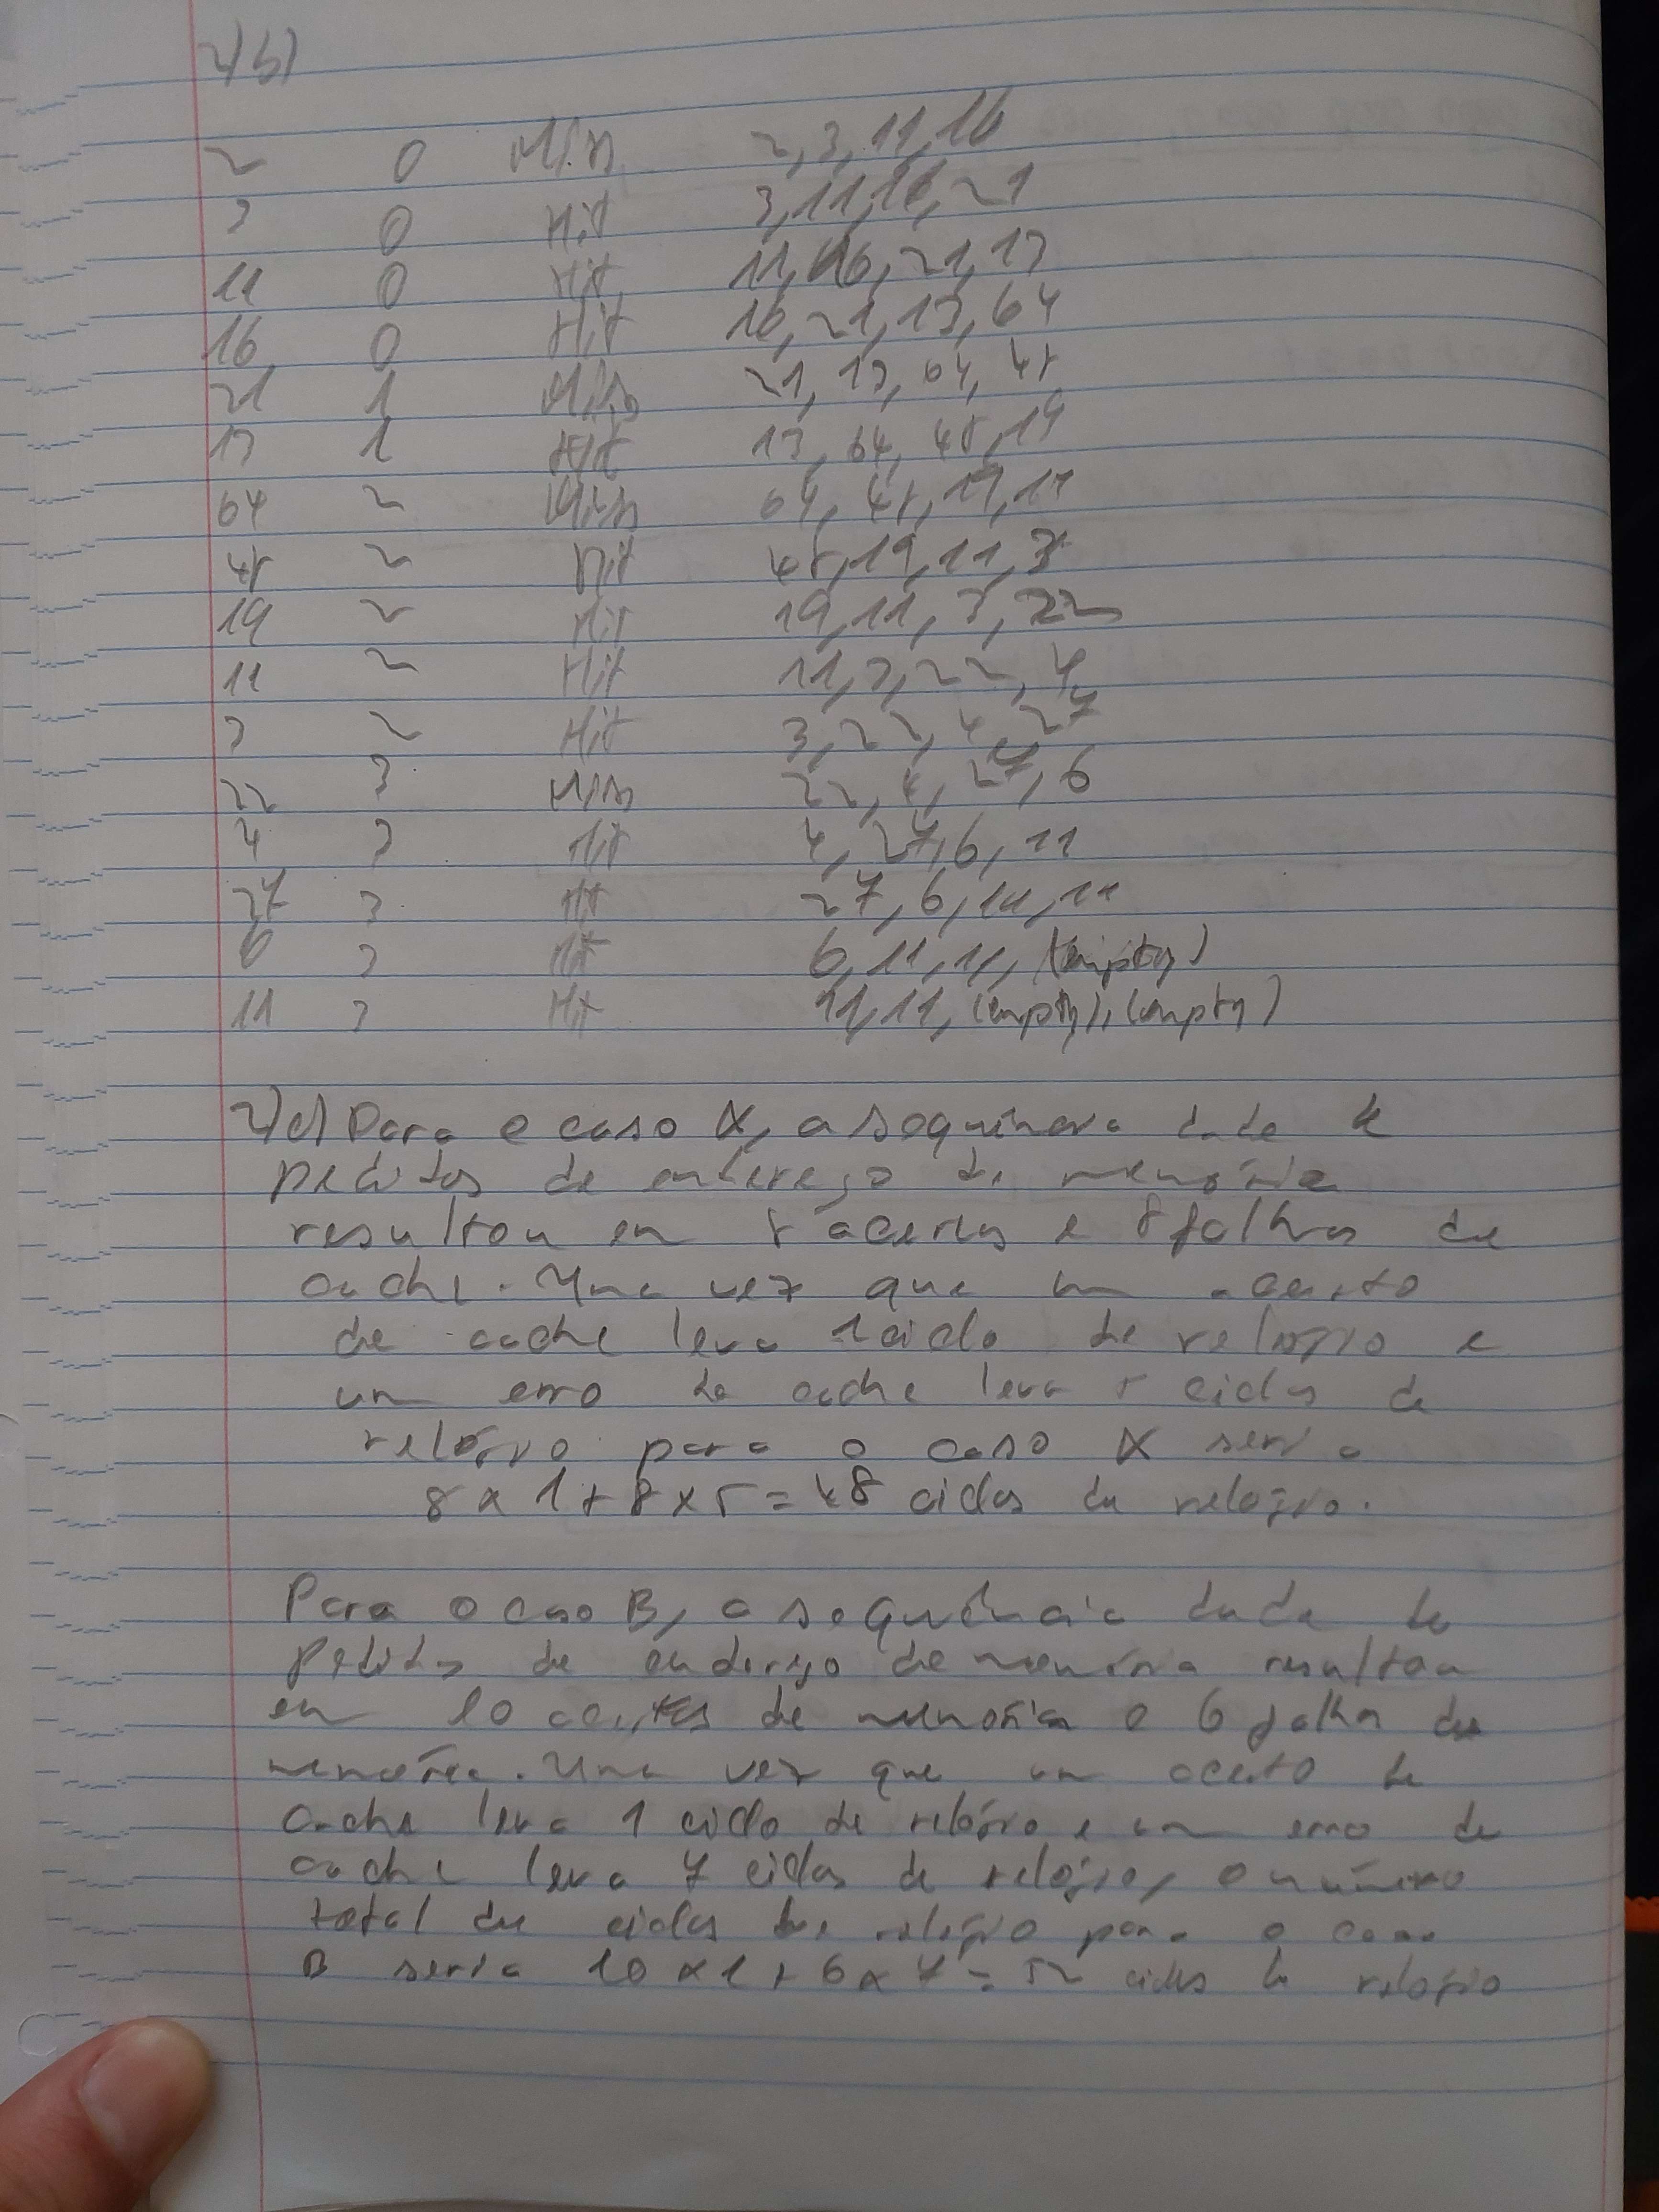 2)b)
2 0 Miss 2, 3, 11, 16
3 0 Hit 3, 11, 16, 21
11 0 Hit 11, 16, 21, 13
16 0 Hit 16, 21, 13, 64
21 1 Miss 21, 13, 64, 48
13 1 Hit 13, 64, 48, 19
64 2 Miss 64, 48, 19, 11
48 2 Hit 48, 19, 11, 3
19 2 Hit 19, 11, 3, 22
11 2 Hit 11, 3, 22, 4
3 2 Hit 3, 22, 4, 27
22 3 Miss 22, 4, 27, 6
4 3 Hit 4, 27, 6, 11
27 3 Hit 27, 6, 11, 11
6 3 Hit 6, 11, 11, (empty)
11 3 Hit 11, 11, (empty), (empty)
Para o caso A, a sequência dada de
pedidos de endereço de memória
resultou em 8 acertos e 8 falhas de
cache. Uma vez que um acerto
de cache leva 1 ciclo de relógio e
um erro de cache leva 5 ciclos de
relógio para o caso A seria
8 x 1 + 8 x 5 = 48 ciclos de relógio.
Para o caso B, a sequência dada de
pedidos de endereço de memória resultou
em 10 acertes de memória e 6 falha de
memória. Uma vez que um acerto de
cache leva 1 ciclo de relógio e um erro de
cache leva 7 ciclos de relógio, o número
total de ciclos de relógio para o caso
B seria 10 x 1 + 6 x 7 = 52 ciclos de relógio